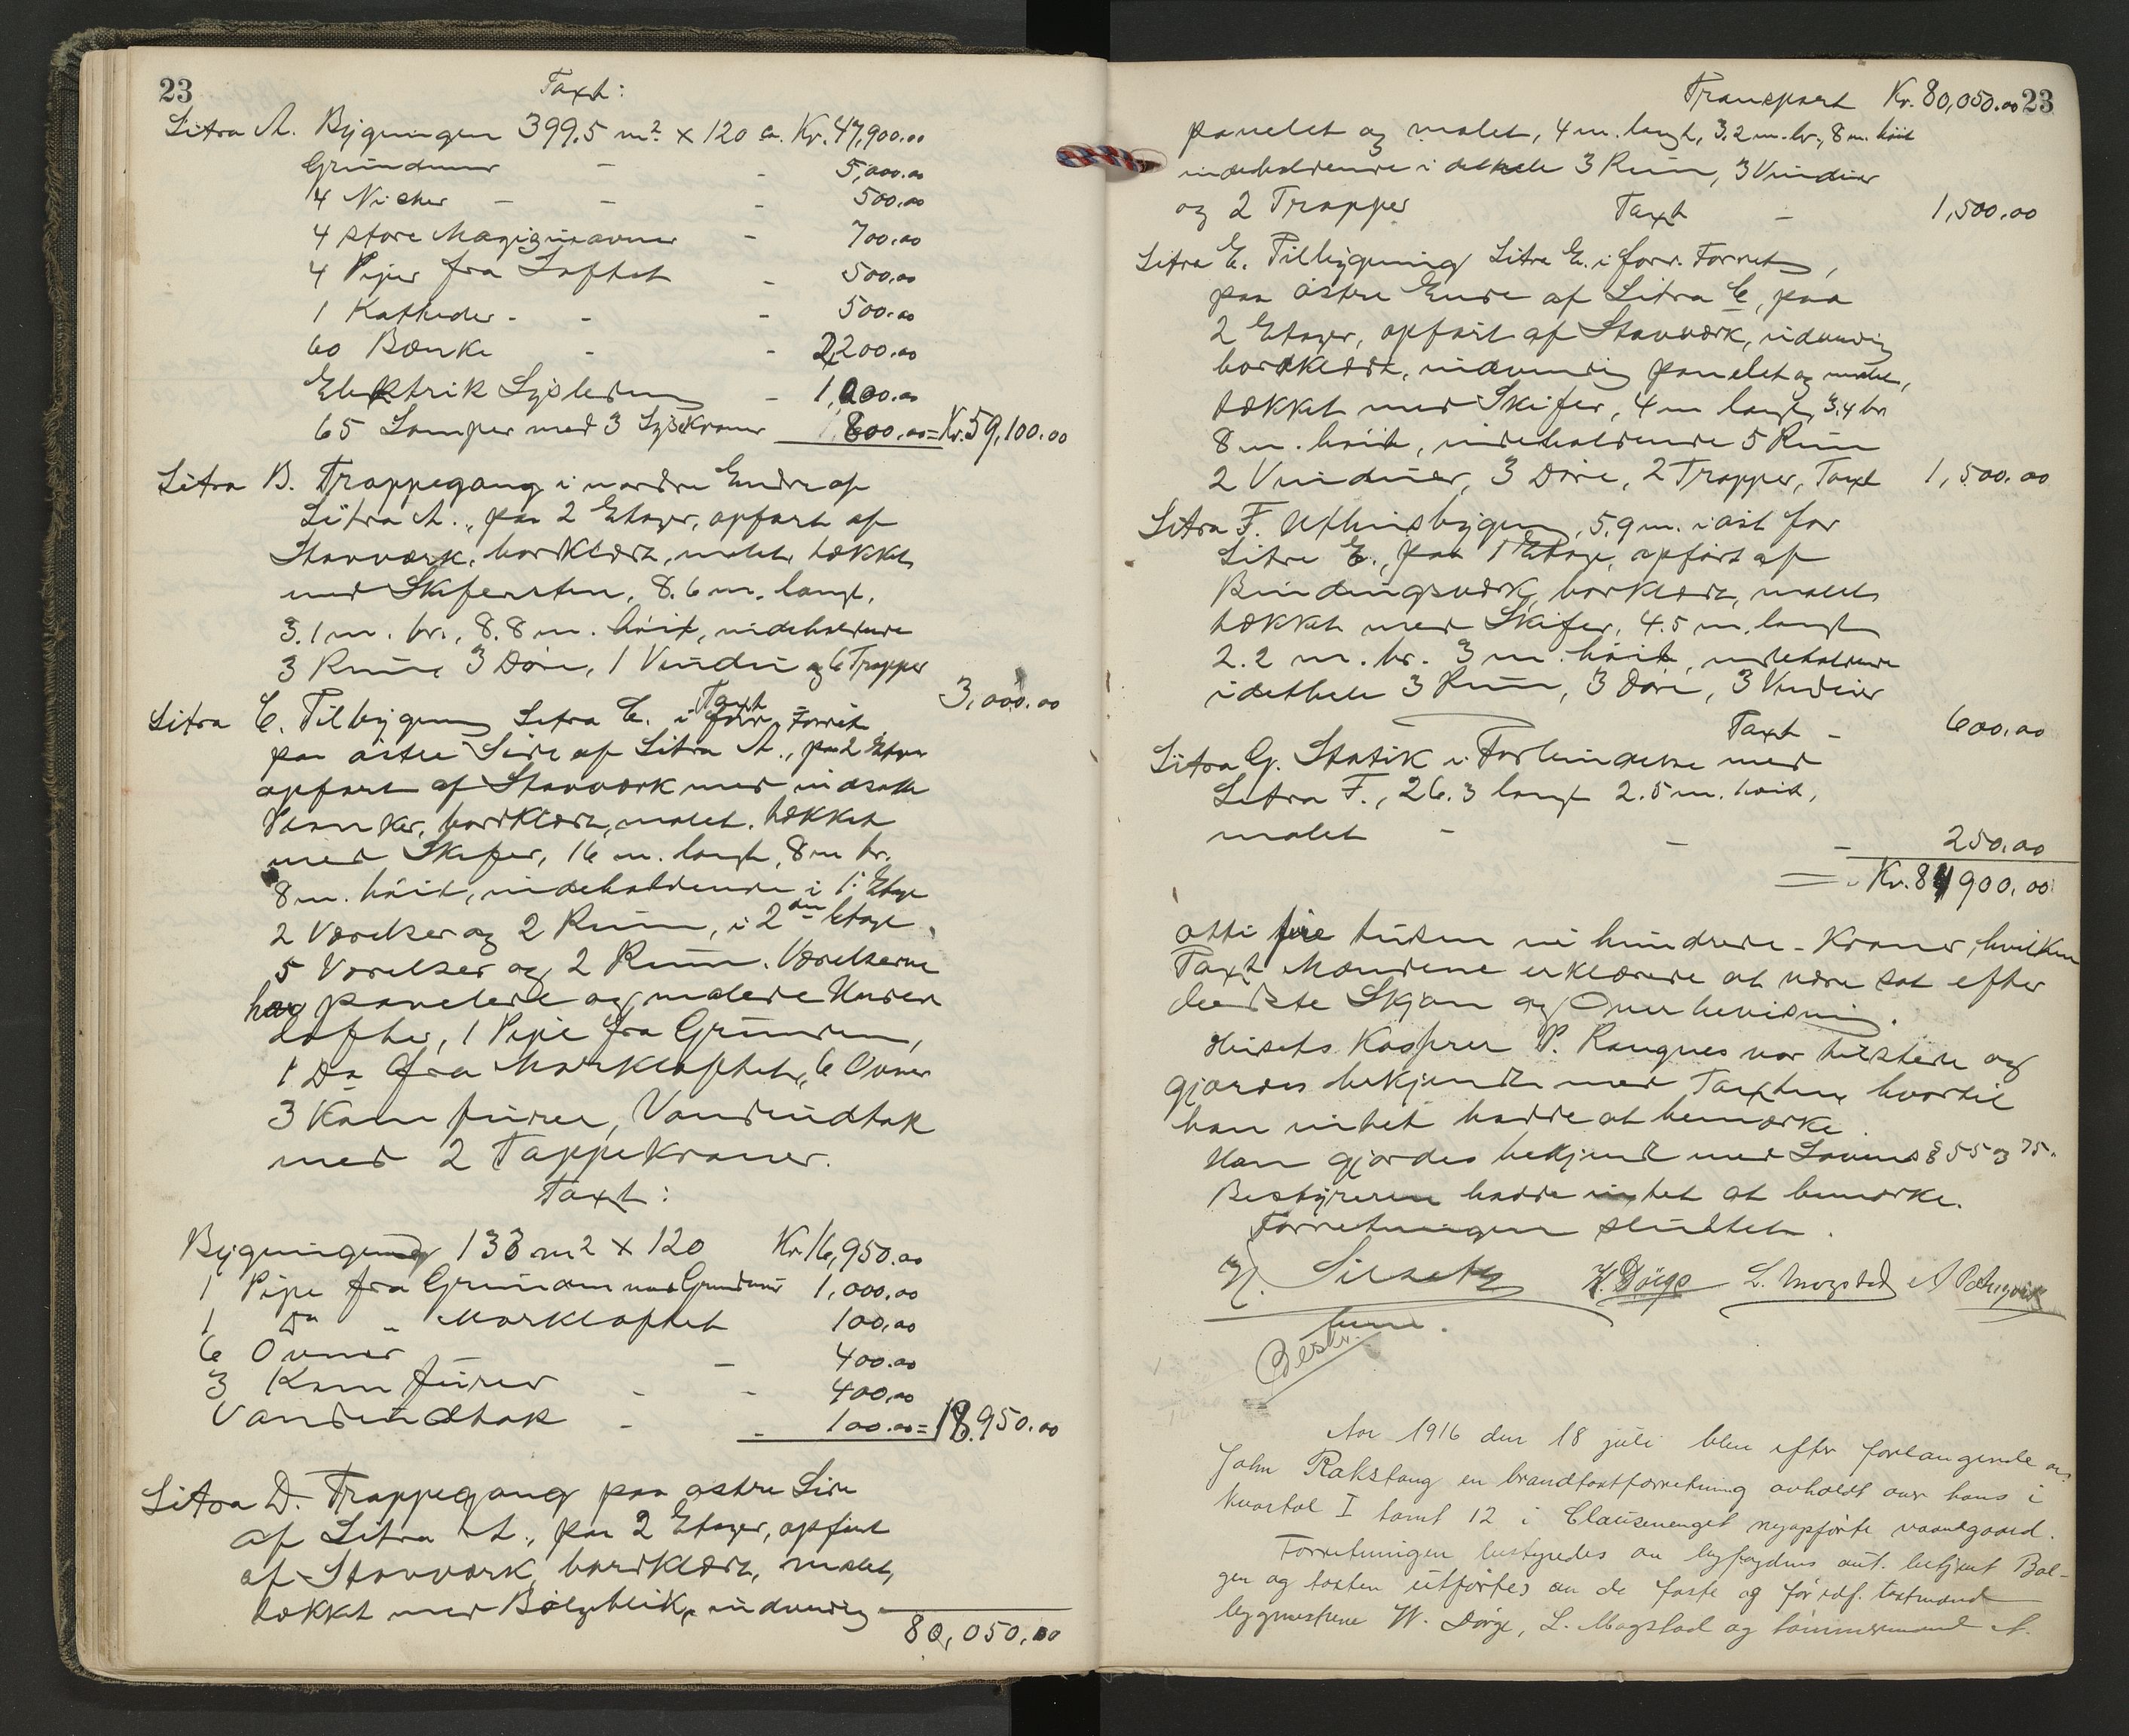 23
Taxt:
Litra A. Bygningen 399.5 m² x 120 a. Kr. 47,900.00
Grundmur - - 5,000.00
4 Nicher - - - 500.00
4 store Magizinovner - 700.00
4 Piper fra Loftet - 500.00
1 Katheder - - - 500.00
60 Bænke - - 2,200.00
Elektrik Lysledn - 1,000.00
65 Lamper med 3 Lysekroner 800.00 = Kr. 59,100.00
Litra B. Trappegang i nordre Endre af
Litra A., paa 2 Etager, opført af
Stavværk, bordklædt, malet, tækket
med Skifersten, 8.6 m. langt,
3.1 m. br., 8.8 m. høit, indeholdende
3 Rum, 3 Døre, 1 Vindu og 6 Trapper
Taxt - 3,000.00
Litra C. Tilbygning Litra C. i forr. Forret
paa østre Side af Litra A., paa 2 Etager
opført af Stavværk med indsatte
Planker, bordklædt, malet, tækket
med Skifer, 16 m. langt, 8 m br.
8 m. høit, indeholdende i 1. Etage
2 Værelser og 2 Rum, i 2den Etage
5 Værelser og 2 Rum. Værelserne
har panelede og malede Under
lofter, 1 Pipe fra Grunden,
1 Do fra Mørkloftet, 6 Ovner
3 Kamfurer, Vandindtak
med 2 Tappekraner.
Taxt:
Bygningen 133 m2 x 120 Kr. 16,950.00
1 Pipe fra Grunden med Grundmur 1,000.00
1 Do " Mørkloftet 100.00
6 Ovner - 400.00
3 Kamfurer - - 400.00
Vandindtak - - 100.00 = 18,950.00
Litra D. Trappegang paa østre Side
af Litra A., paa 2 Etager, opført
af Stavværk, bordklædt, malet,
tækket med Bølgeblik, indvendig
80,050.00
Transport Kr. 80,050.00 23
panelet og malet, 4 m. langt, 3.2 m. br., 8 m. høit
indeholdende i det hele 3 Rum, 3 Vinduer
og 2 Trapper Taxt - 1,500.00
Litra E. Tilbygning Litra E. i forr. Forret,
paa østre Ende af Litra C, paa
2 Etager, opført af Stavværk, udvendig
bordklædt, indvendig panelet og malet,
tækket med Skifer, 4 m langt, 3.4 br.
8 m. høit, indeholdende 5 Rum
2 Vinduer, 3 Døre, 2 Trapper, Taxt 1,500.00
Litra F. Uthusbygning, 5.9 m. i øst for
Litra E., paa 1 Etage, opført af
Bindingsværk, bordklædt, malet
tækket med Skifer, 4.5 m. langt
2.2 m. br. 3 m. høit, indeholdende
i det hele 3 Rum, 3 Døre, 3 Vinduer
Taxt - 600.00
Litra G. Statik i Forbindelse med
Litra F., 26.3 langt 2.5 m. høit,
malet - - - 250.00
= Kr. 84,900.00
otti fire tusen ni hundrede - Kroner, hvilken
Taxt Mændene erklærede at være sat efter
bedste Skjøn og Overbevisning.
Husets Kasserer P. Rangnes var tilstede og
gjordes bekjendt med Taxten, hvortil
han intet hadde at bemærke.
Han gjordes bekjendt med Lovens § 55 og 75.
Bestyreren hadde intet at bemærke.
Forretningen sluttet.
W. Dörge L. Mogstad A
Bestr.
Aar 1916 den 18 juli blev efter forlangende av
John Rakstang en brandtaxtforretning avholdt over hans i
Kvartal I tomt 12 i Clausenenget nyopførte vaaningsgaard.
Forretningen bestyredes av byfogdens aut. betjent Bol-
gen og taxten utførtes av de faste og før edf. taxtmænd
bygmestrene W. Dörge, L. Mogstad og tømmermand A.